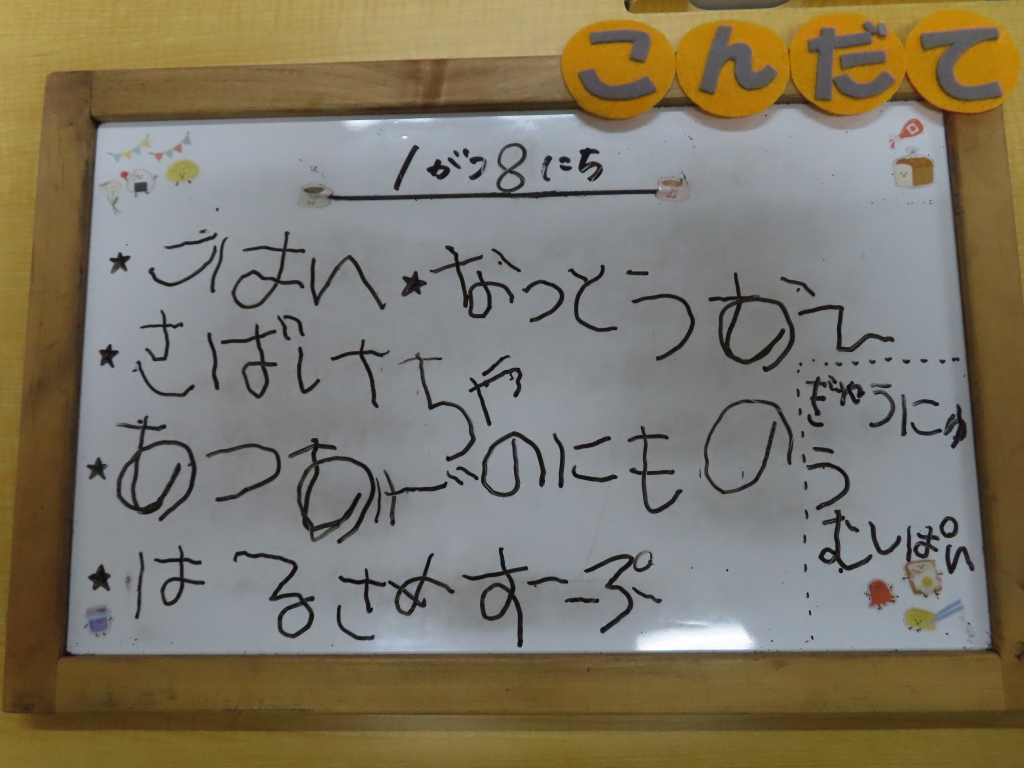 こんだて
1がつ8にち
★ごはん ★なっとうあえ
★さばしょうちゃ
★あつあげのにもの
★はるさめすーぷ
ぎゅうにゅ
う
むしぱん